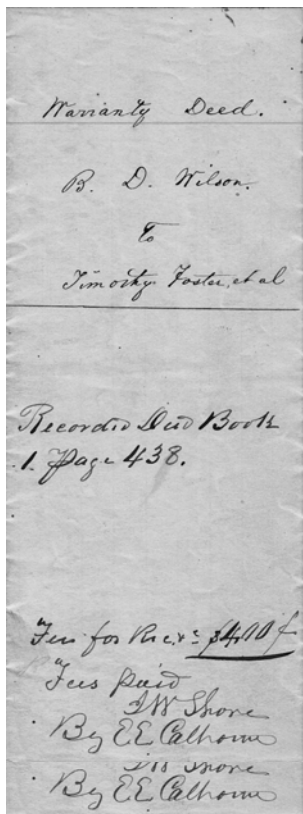 Warranty Deed.
B. D. Wilson.
To
Timothy Foster, et al
Recorded Deed Book
1. Page 438.
Fees for Rec
Fees paid
Shore
By E E Calhoun
Shore
By E E Calhoun